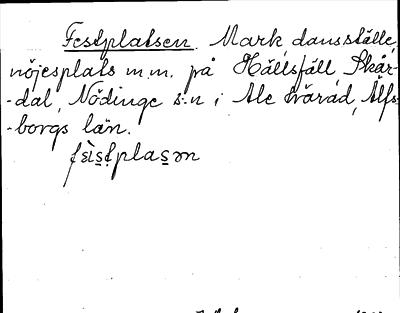 Festplatsen. Mark dansställe,
nöjesplats m.m. på Hällsfäll, Skår-
-dal, Nödinge s:n i Ale härad, Älfs-
-borgs län.